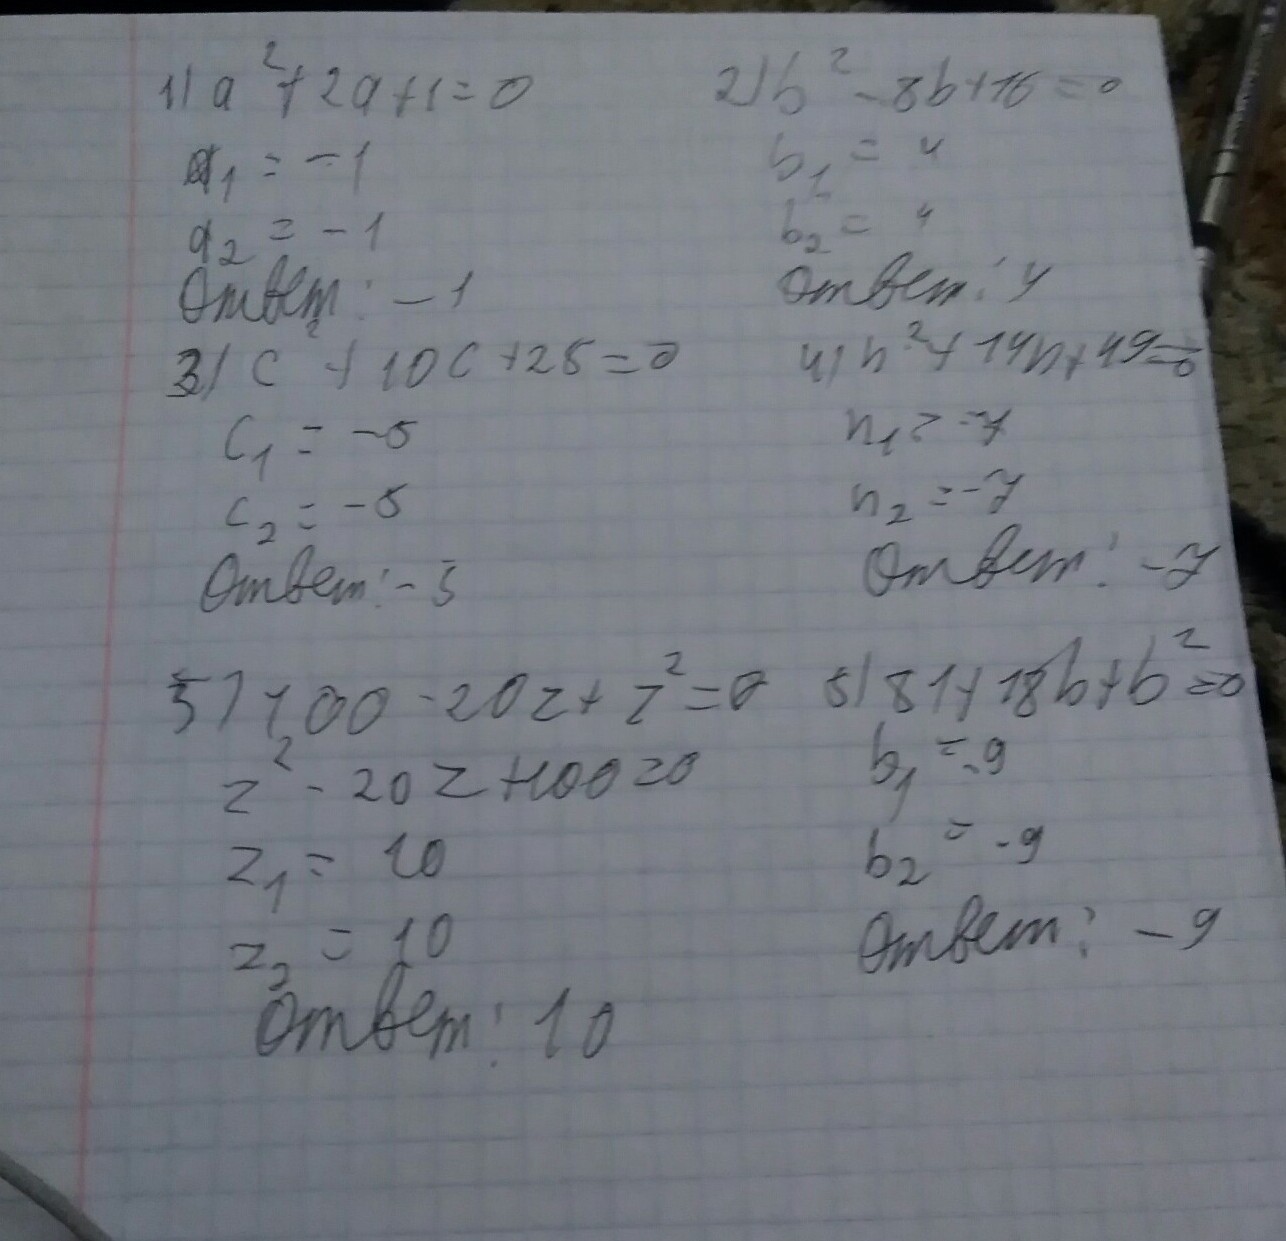 1) a² + 2a + 1 = 0
a₁ = -1
a₂ = -1
Ответ: -1
2) b² - 8b + 16 = 0
b₁ = 4
b₂ = 4
Ответ: 4
3) c² + 10c + 25 = 0
c₁ = -5
c₂ = -5
Ответ: -5
4) n² + 14n + 49 = 0
n₁ = -7
n₂ = -7
Ответ: -7
5) 100 - 20z + z² = 0
z² - 20z + 100 = 0
z₁ = 10
z₂ = 10
Ответ: 10
6) 81 + 18b + b² = 0
b₁ = -9
b₂ = -9
Ответ: -9